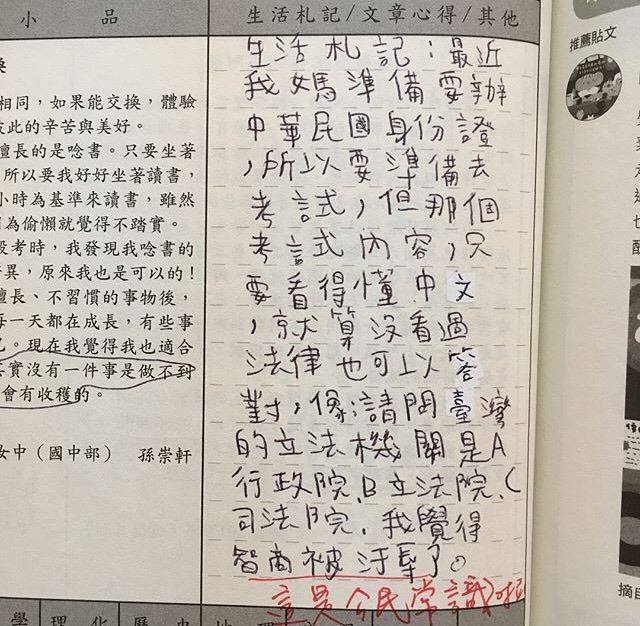 小品
相同，如果能交換，體驗
此的辛苦與美好。
擅長的是唸書。只要坐著
所以要我好好坐著讀書，
小時為基準來讀書，雖然
為偷懶就覺得不踏實。
段考時，我發現我唸書的
異，原來我也是可以的！
擅長、不習慣的事物後，
每一天都在成長，有些事
。現在我覺得我也適合
實沒有一件事是做不到
會有收穫的。
女中（國中部） 孫崇軒
生活札記/文章心得/其他
生活札記：最近
我媽準備要辦
中華民國身份證
，所以要準備去
考試，但那個
考試內容，只
要看得懂中文
，就算沒看過
法律也可以答
對，像：請問臺灣
的立法機關是A
行政院、B立法院、C
司法院，我覺得
智商被汙辱了。
這是公民常識啦
學 理化 歷史 地
推薦貼文
摘自